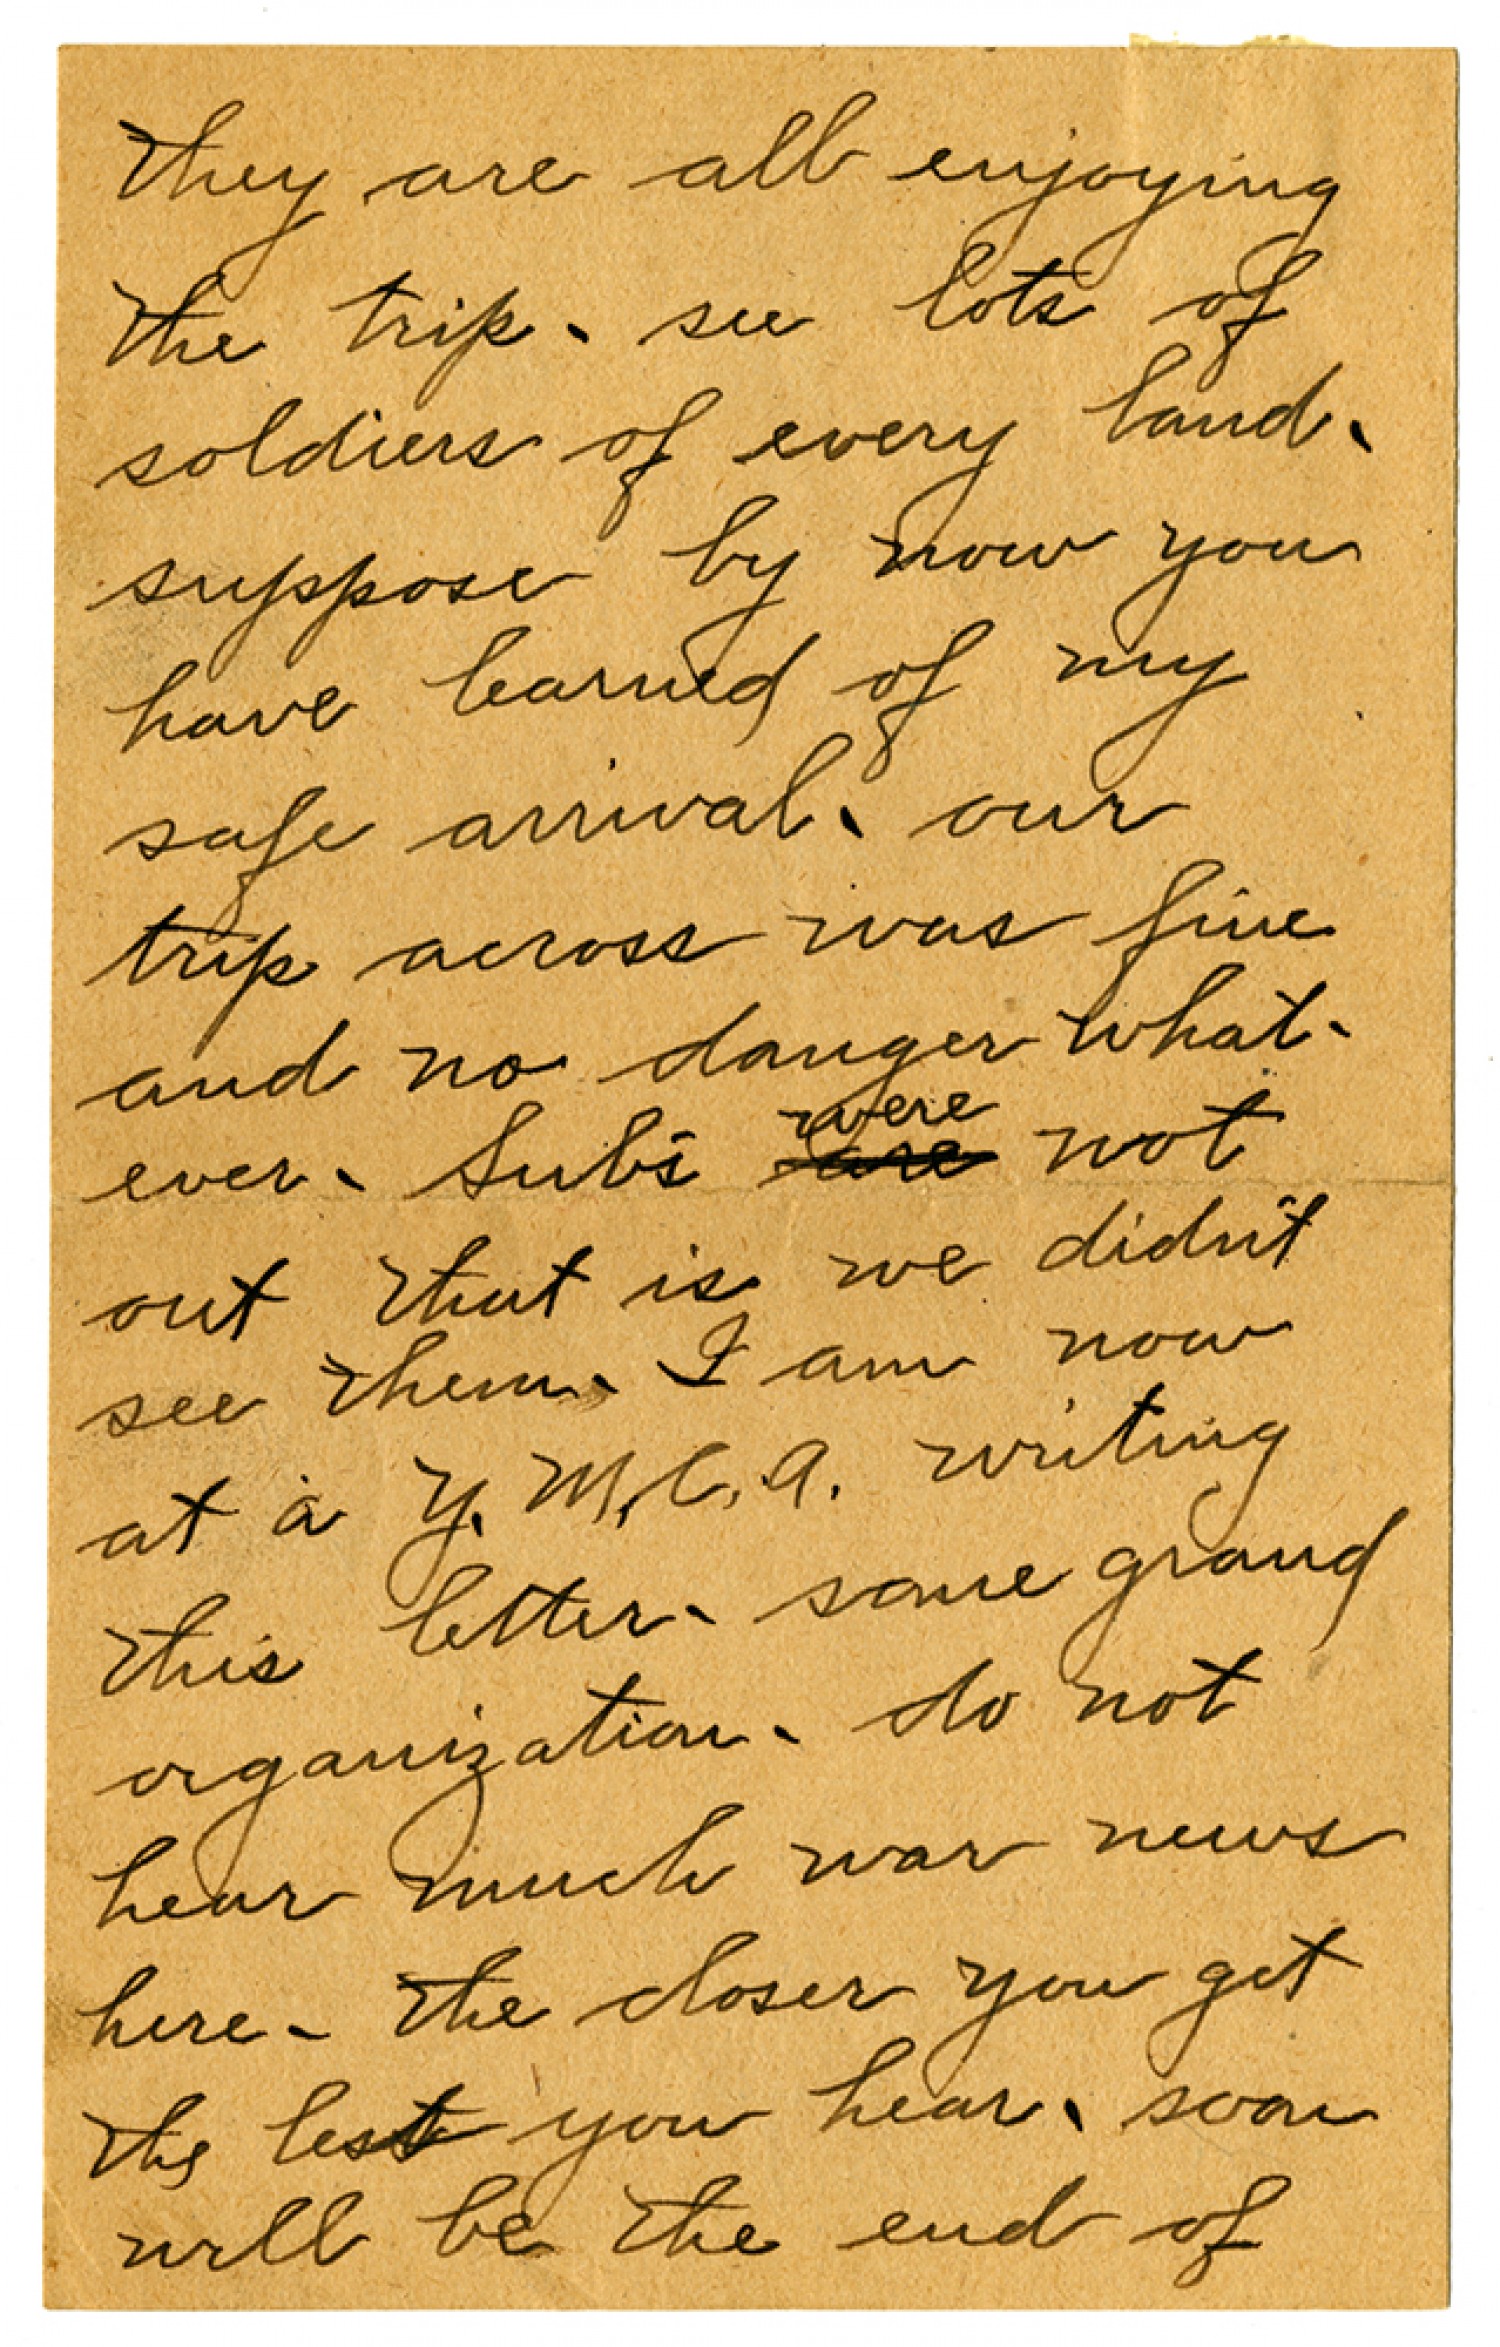 They are all enjoying
the trip. see lots of
soldiers of every land.
suppose by now you
have learned of my
safe arrival. our
trip across was fine
and no danger what-
ever. Subs were ~~are~~ not
out that is we didn't
see them. I am now
at a Y.M.C.A. writing
this letter. some grand
organization. do not
hear much war news
here - the closer you get
the lest you hear. soon
will be the end of